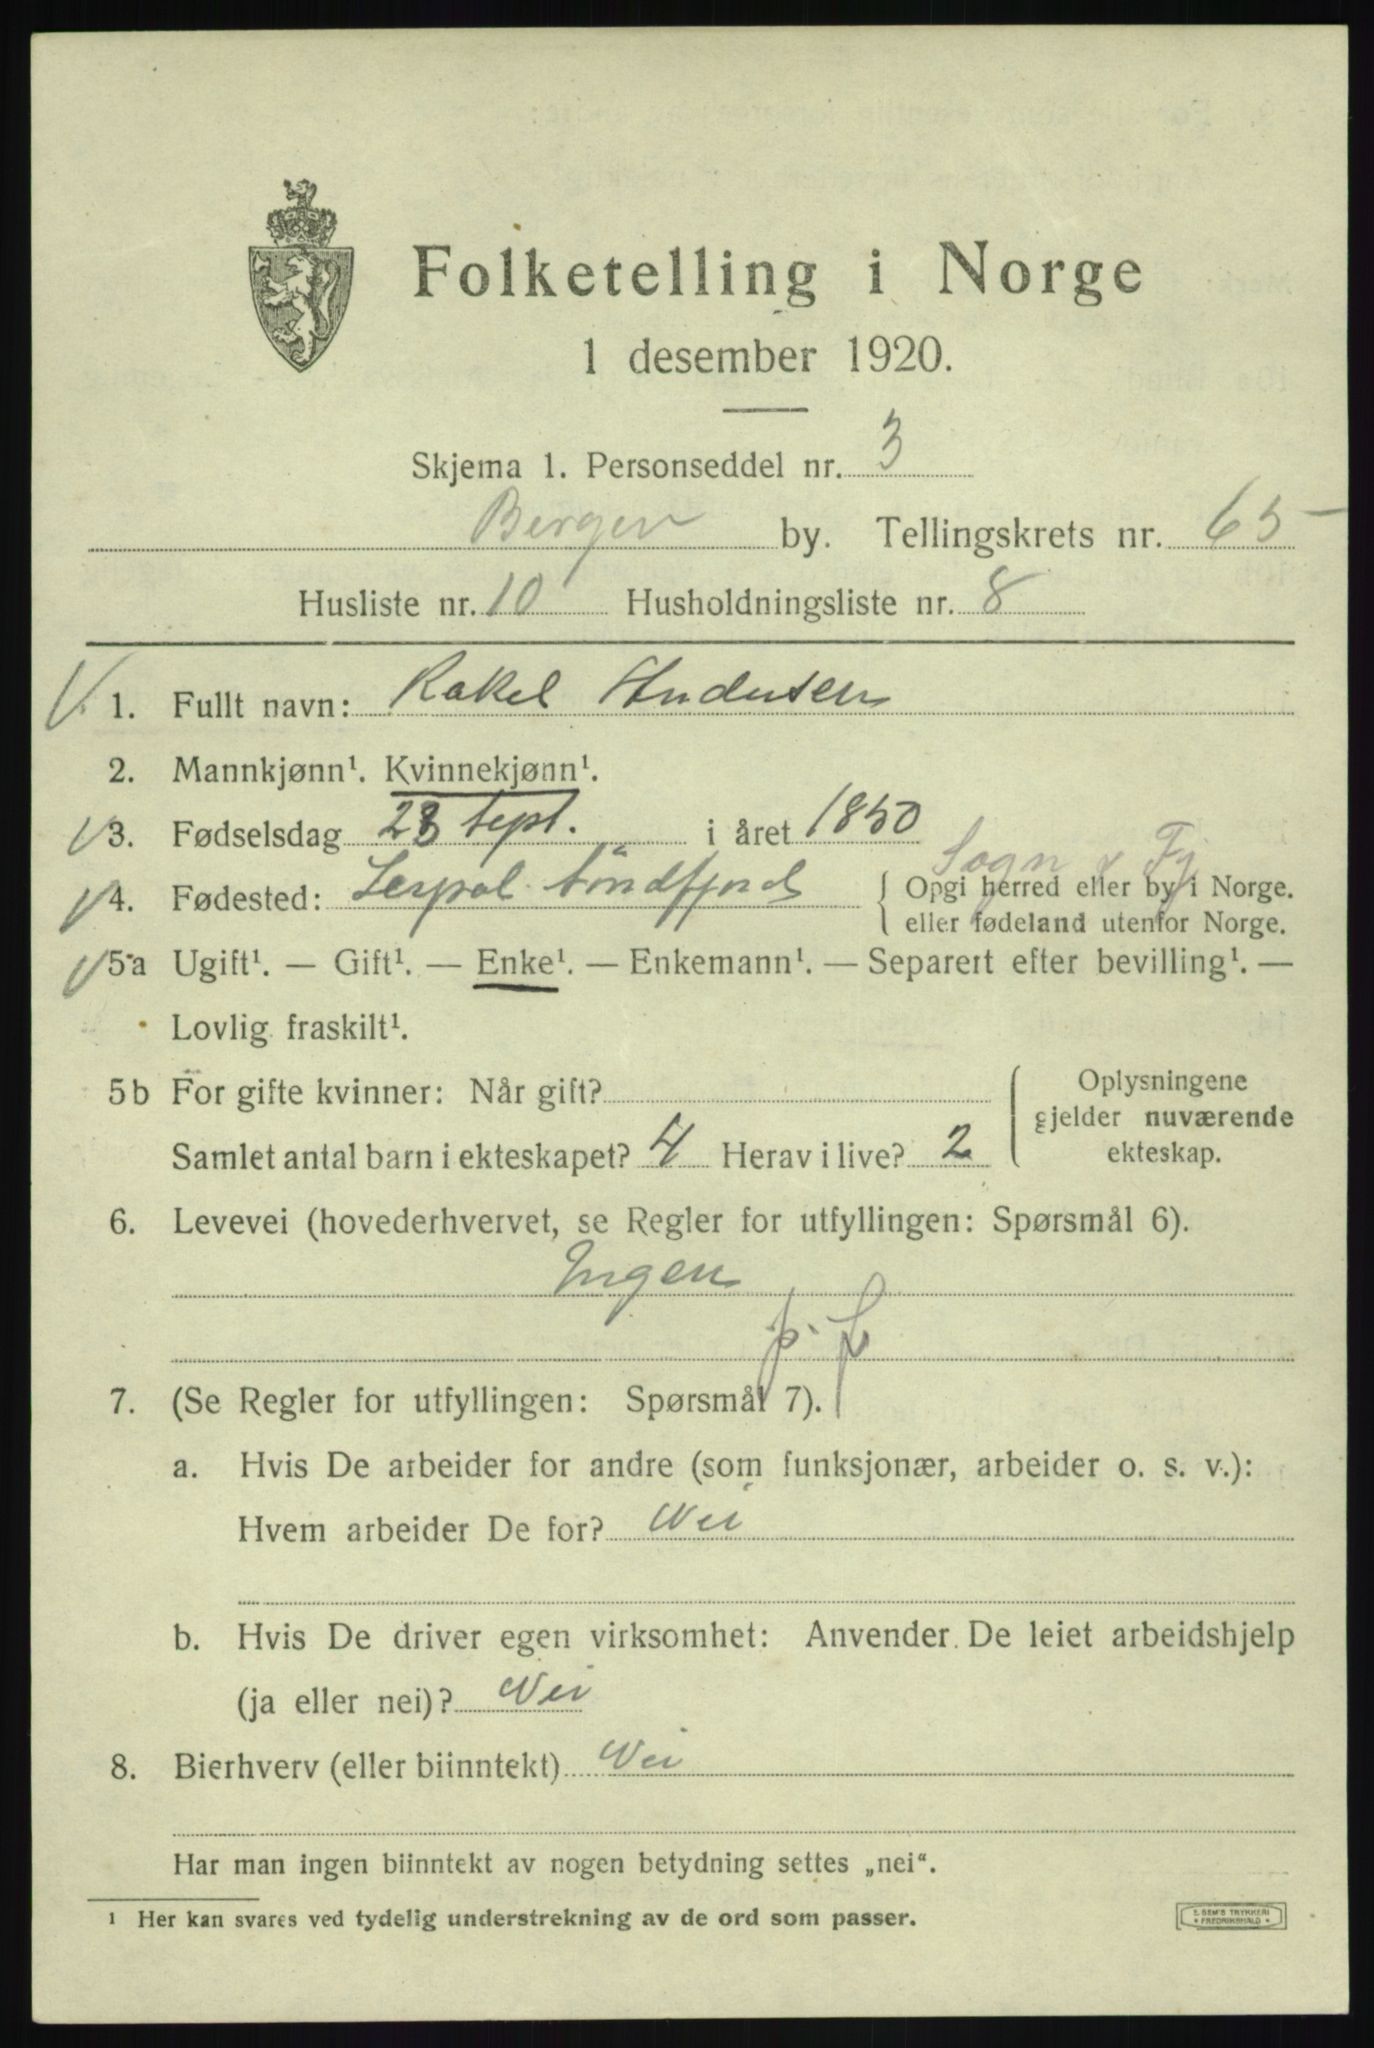 Folketelling i Norge
1 desember 1920.
Skjema 1. Personseddel nr. 3
Bergen by. Tellingskrets nr. 65
Husliste nr. 10 Husholdningsliste nr. 8
1. Fullt navn: Rakel Andersen
2. Mannkjønn¹. Kvinnekjønn¹.
3. Fødselsdag 28 sept. i året 1850
4. Fødested: Søndfjord
Sogn & Fj
Opgi herred eller by i Norge.
eller fødeland utenfor Norge.
5a Ugift¹. — Gift¹. — Enke¹. — Enkemann¹. — Separert efter bevilling¹. —
Lovlig fraskilt¹.
5b For gifte kvinner: Når gift?
Samlet antal barn i ekteskapet? 4 Herav i live? 2
Oplysningene
gjelder nuværende
ekteskap.
6. Levevei (hovederhvervet, se Regler for utfyllingen: Spørsmål 6).
Ingen
7. (Se Regler for utfyllingen: Spørsmål 7).
a. Hvis De arbeider for andre (som funksjonær, arbeider o. s. v.):
Hvem arbeider De for? Nei
b. Hvis De driver egen virksomhet: Anvender De leiet arbeidshjelp
(ja eller nei)? Nei
8. Bierhverv (eller biinntekt) Nei
Har man ingen biinntekt av nogen betydning settes „nei“.
¹ Her kan svares ved tydelig understrekning av de ord som passer.
E. SEM'S TRYKKERI
* FREDRIKSHALD *